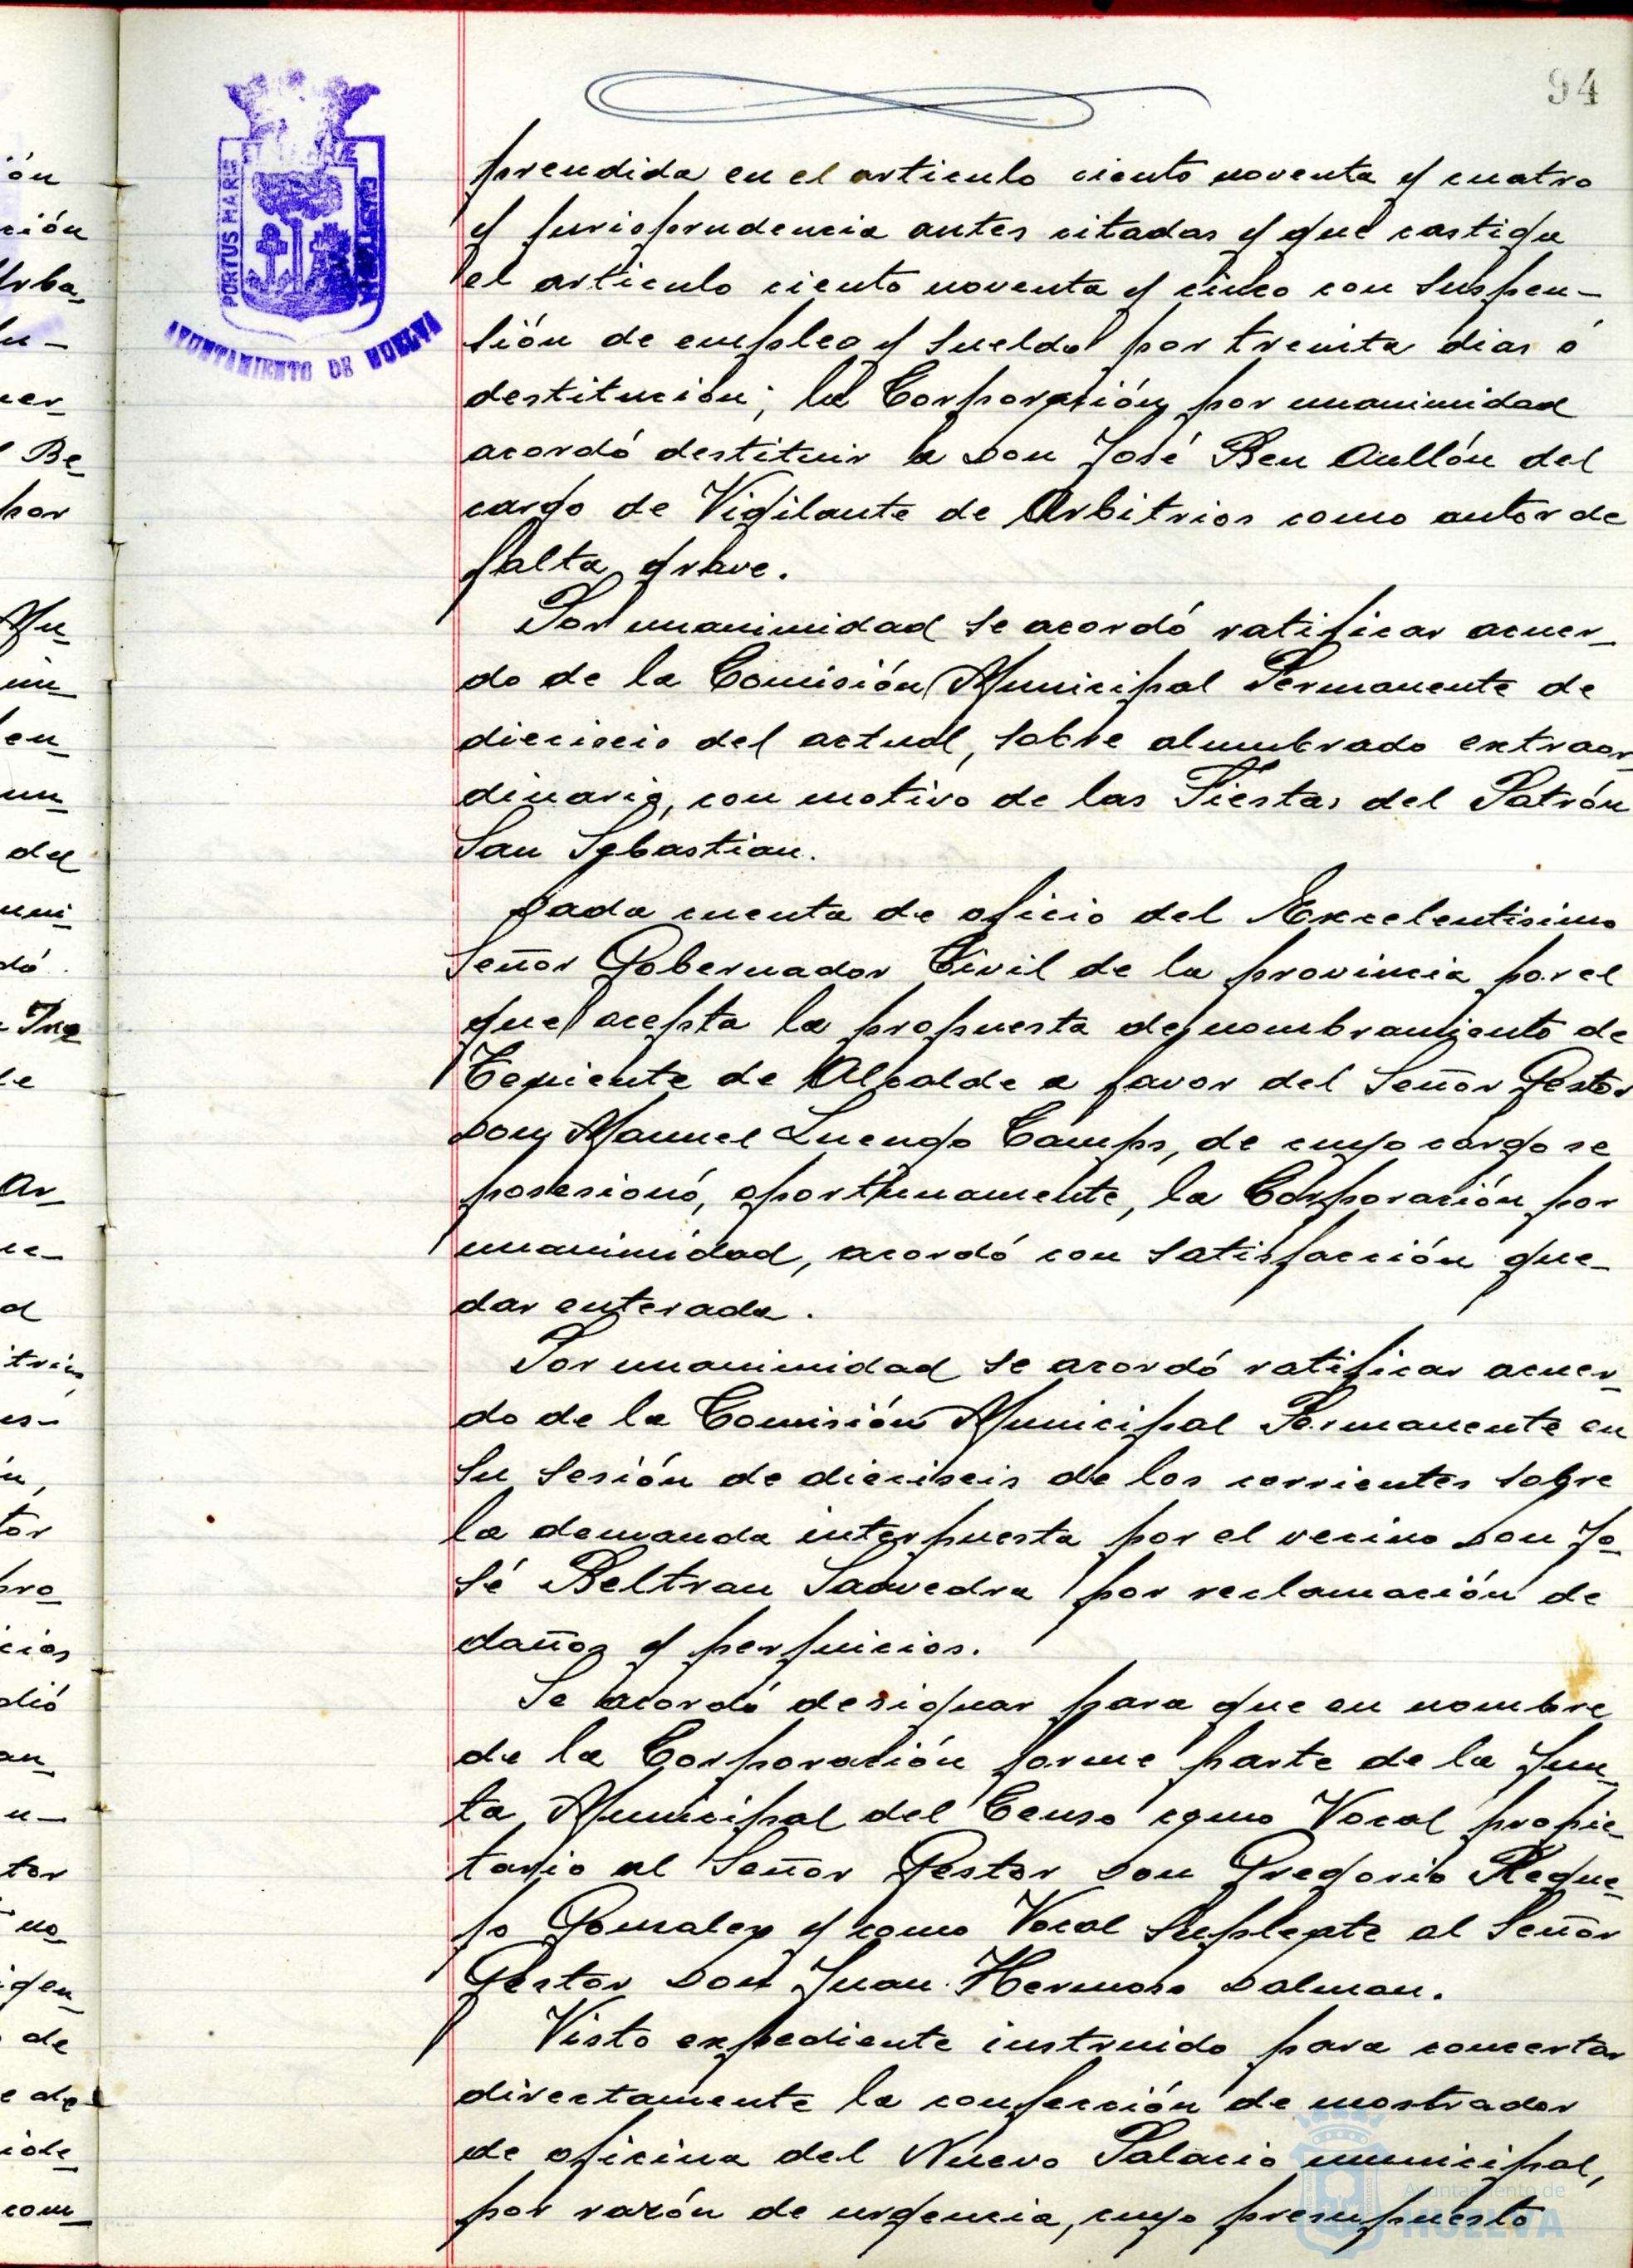 94
PORTUS MARIS
AYUNTAMIENTO DE HUELVA
prendida en el articulo ciento noventa y cuatro
y jurisprudencia antes citadas y que castiga
el articulo ciento noventa y cinco con suspen-
sión de empleo y sueldo por treinta dias ó
destitución; la Corporación por unanimidad
acordó destituir a Don José Ben Aullón del
cargo de Vigilante de Arbitrios como autor de
falta grave.
Por unanimidad se acordó ratificar acuer-
do de la Comisión Municipal Permanente de
dieciseis del actual, sobre alumbrado extraor-
dinario, con motivo de las Fiestas del Patrón
San Sebastian.
Dada cuenta de oficio del Excelentisimo
Señor Gobernador Civil de la provincia por el
que acepta la propuesta de nombramiento de
Teniente de Alcalde a favor del Señor Gestor
Don Manuel Luengo Camps, de cuyo cargo se
posesionó, oportunamente, la Corporación por
unanimidad, acordó con satisfacción que-
dar enterada.
Por unanimidad se acordó ratificar acuer-
do de la Comisión Municipal Permanente en
su sesión de dieciseis de los corrientes sobre
la demanda interpuesta por el vecino Don Jo-
sé Beltran Saavedra por reclamación de
daños y perjuicios.
Se acordó designar para que en nombre
de la Corporación forme parte de la Jun-
ta Municipal del Censo como Vocal propie-
tario al Señor Gestor Don Gregorio Reque-
jo Gonzalez y como Vocal Suplente al Señor
Gestor Don Juan Hermoso Dalman.
Visto expediente instruido para concertar
directamente la confección de mostrador
de oficina del Nuevo Palacio municipal,
por razón de urgencia, cuyo presupuesto
Ayuntamiento de
HUELVA